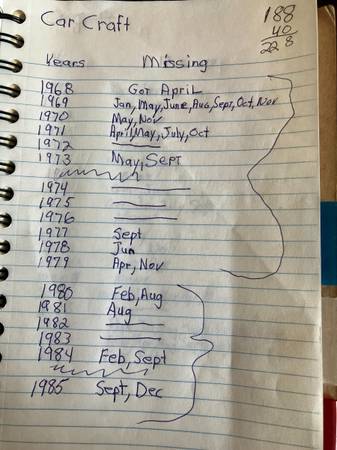 Car Craft
188
40
228
Years Missing
1968 Got April
1969 Jan, May, June, Aug, Sept, Oct, Nov
1970 May, Nov
1971 April, May, July, Oct
1972
1973 May, Sept
1974
1975
1976
1977 Sept
1978 Jun
1979 Apr, Nov
1980 Feb, Aug
1981 Aug
1982
1983
1984 Feb, Sept
1985 Sept, Dec